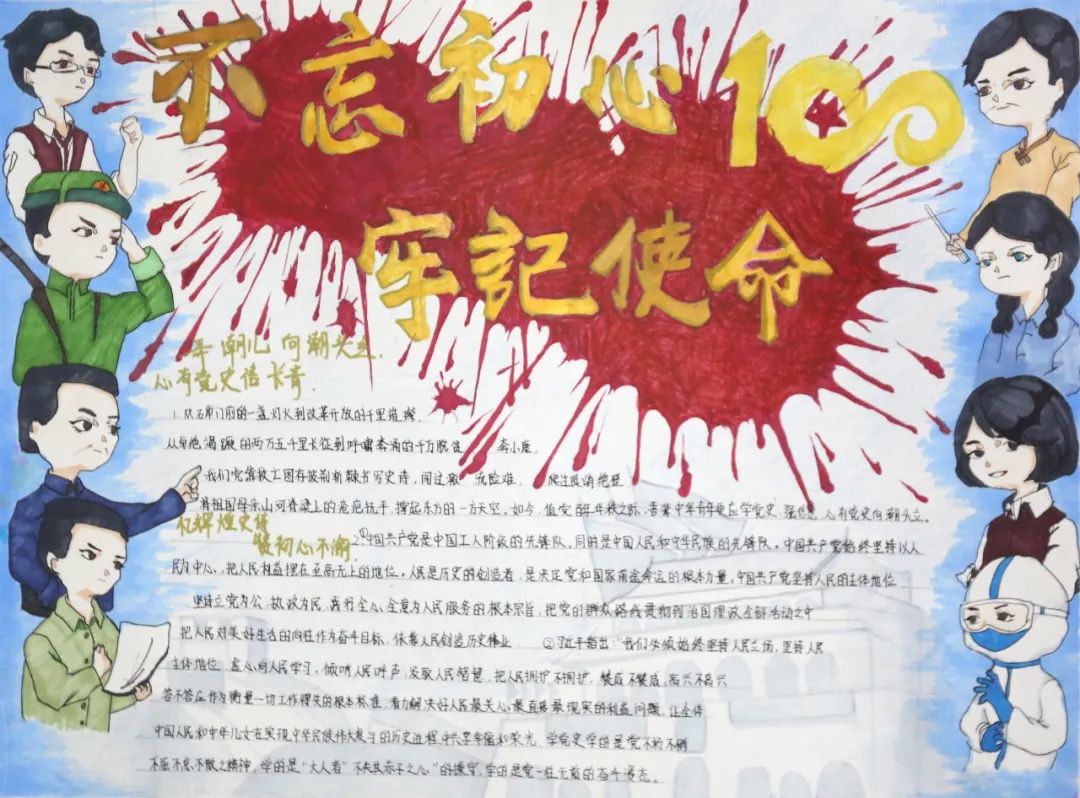 不忘初心 100
牢记使命
弄潮儿向潮头立,
心有党史信长青.
1.从石库门前的一盏灯火到改革开放的千里
从草地 的两万五千里长征到呼啸奔涌的千万脱贫 奔小康。
我们党 救亡图存披荆斩棘书写史诗,闯过 流险难。 爬过
将祖国母亲山河脊梁上的 扛平,撑起东方的一方天空。如今,值党百年年轮之际,吾辈中华青年更应学党史,强信念,心有党史向潮头立。
忆辉煌史绩
疑初心不渝
①中国共产党是中国工人阶级的先锋队,同时是中国人民和中华民族的先锋队,中国共产党始终坚持以人
民为中心,把人民利益摆在至高无上的地位。人民是历史的创造者,是决定党和国家前途命运的根本力量。中国共产党坚持人民的主体地位
坚持立党为公,执政为民,践行全心全意为人民服务的根本宗旨,把党的群众路线贯彻到治国理政全部活动之中
把人民对美好生活的向往作为奋斗目标,依靠人民创造历史伟业. ②习近平指出:“我们必须始终坚持人民立场,坚持人民
主体地位,虚心向人民学习,倾听人民呼声,汲取人民智慧,把人民拥护不拥护,赞成不赞成,高兴不高兴
答不答应作为衡量一切工作得失的根本标准,着力解决好人民最关心最直接最现实的利益问题,让全体
中国人民和中华儿女在实现中华民族伟大复兴的历史进程中共享幸福和荣光,学党史学的是党不朽不朽
不屈不息不散之精神,学的是“大人者”不失其赤子之心”的操守,学的是党一往无前的奋斗姿态。